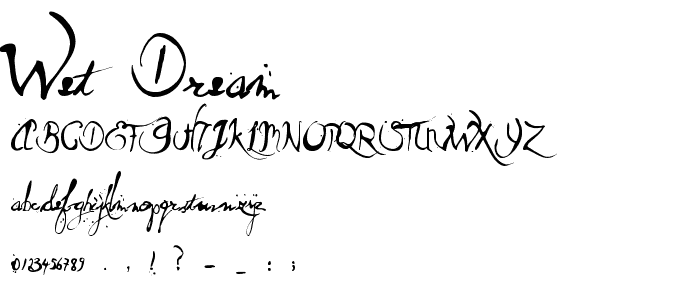 Wet Dream
ABCDEFGHIJKLMNOPQRSTUVWXYZ
abcdefghijklmnopqrstuvwxyz
0123456789 . , ! ? - _ : ;